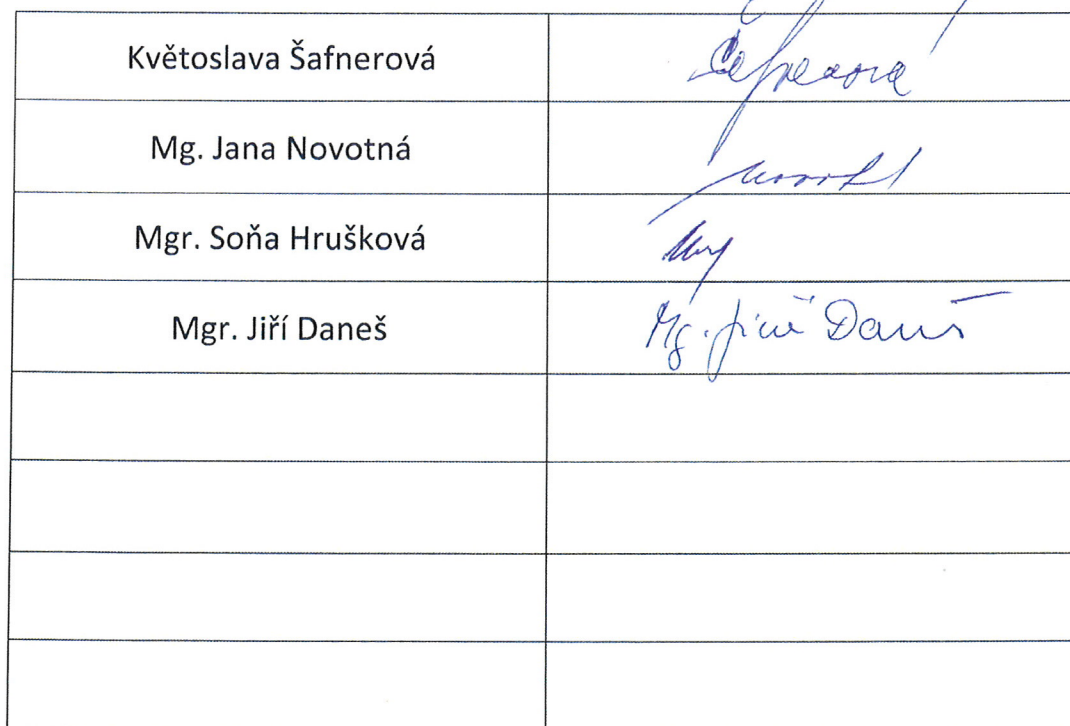 Květoslava Šafnerová
Mg. Jana Novotná
Mgr. Soňa Hrušková
Mgr. Jiří Daneš Mg. Jiří Daneš